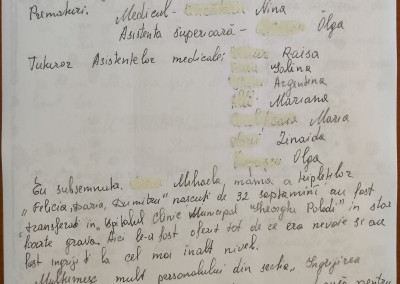 Prematuri. Medicul - Nina
Asistenta superioară - Olga
Tuturor Asistentelor medicale: Raisa
Galina
Argentina
Mariana
Maria
Zinaida
Olga
Eu subsemnuta, Mihaela, mama a tripletelor
"Felicia, Daria, Dumitru" nascuti de 32 septamini au fost
transferati in, Spitalul clinic Municipal "Gheorghe Paladi" in stare
foarte grava. Aici le-a fost oferit tot de ce era nevoie si au
fost ingrijiti la cel mai inalt nivel.
Multumesc mult personalului din sectia, "Ingrijirea
pentru